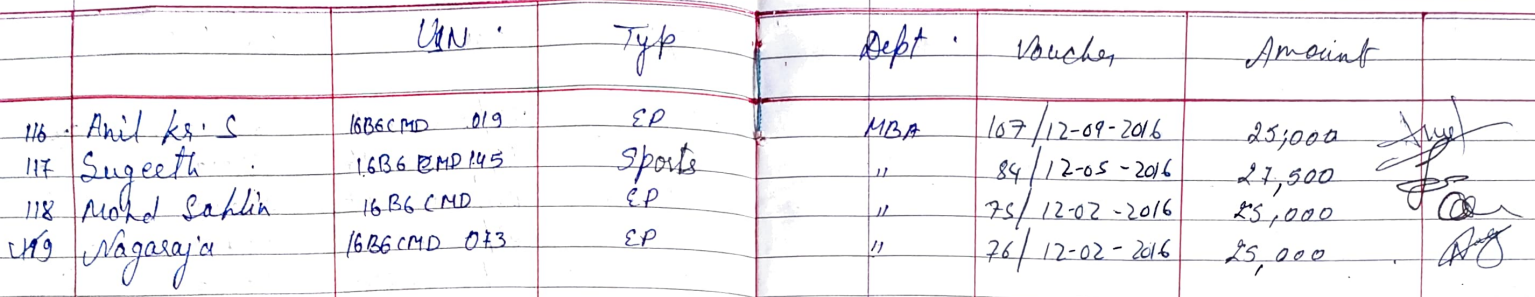 UIN . Typ Dept . Voucher Amount
116 . Anil kr. S 16B6CMD 019 EP MBA 107/12-09-2016 25,000
117 Sugeeth . 16B6 CMD 145 Sports " 84/12-05-2016 27,500
118 Mohd Sahlin 16B6CMD EP " 75/12-02-2016 25,000
119 Nagaraja 16B6CMD 073 EP " 76/12-02-2016 25,000